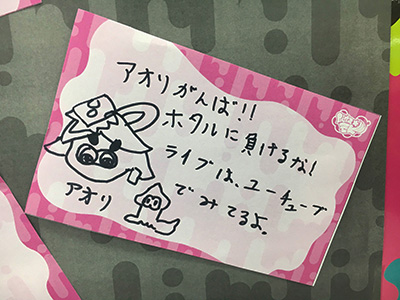 アオリがんば!!
ホタルに負けるな!
ライブは、ユーチューブ
でみてるよ。
アオリ